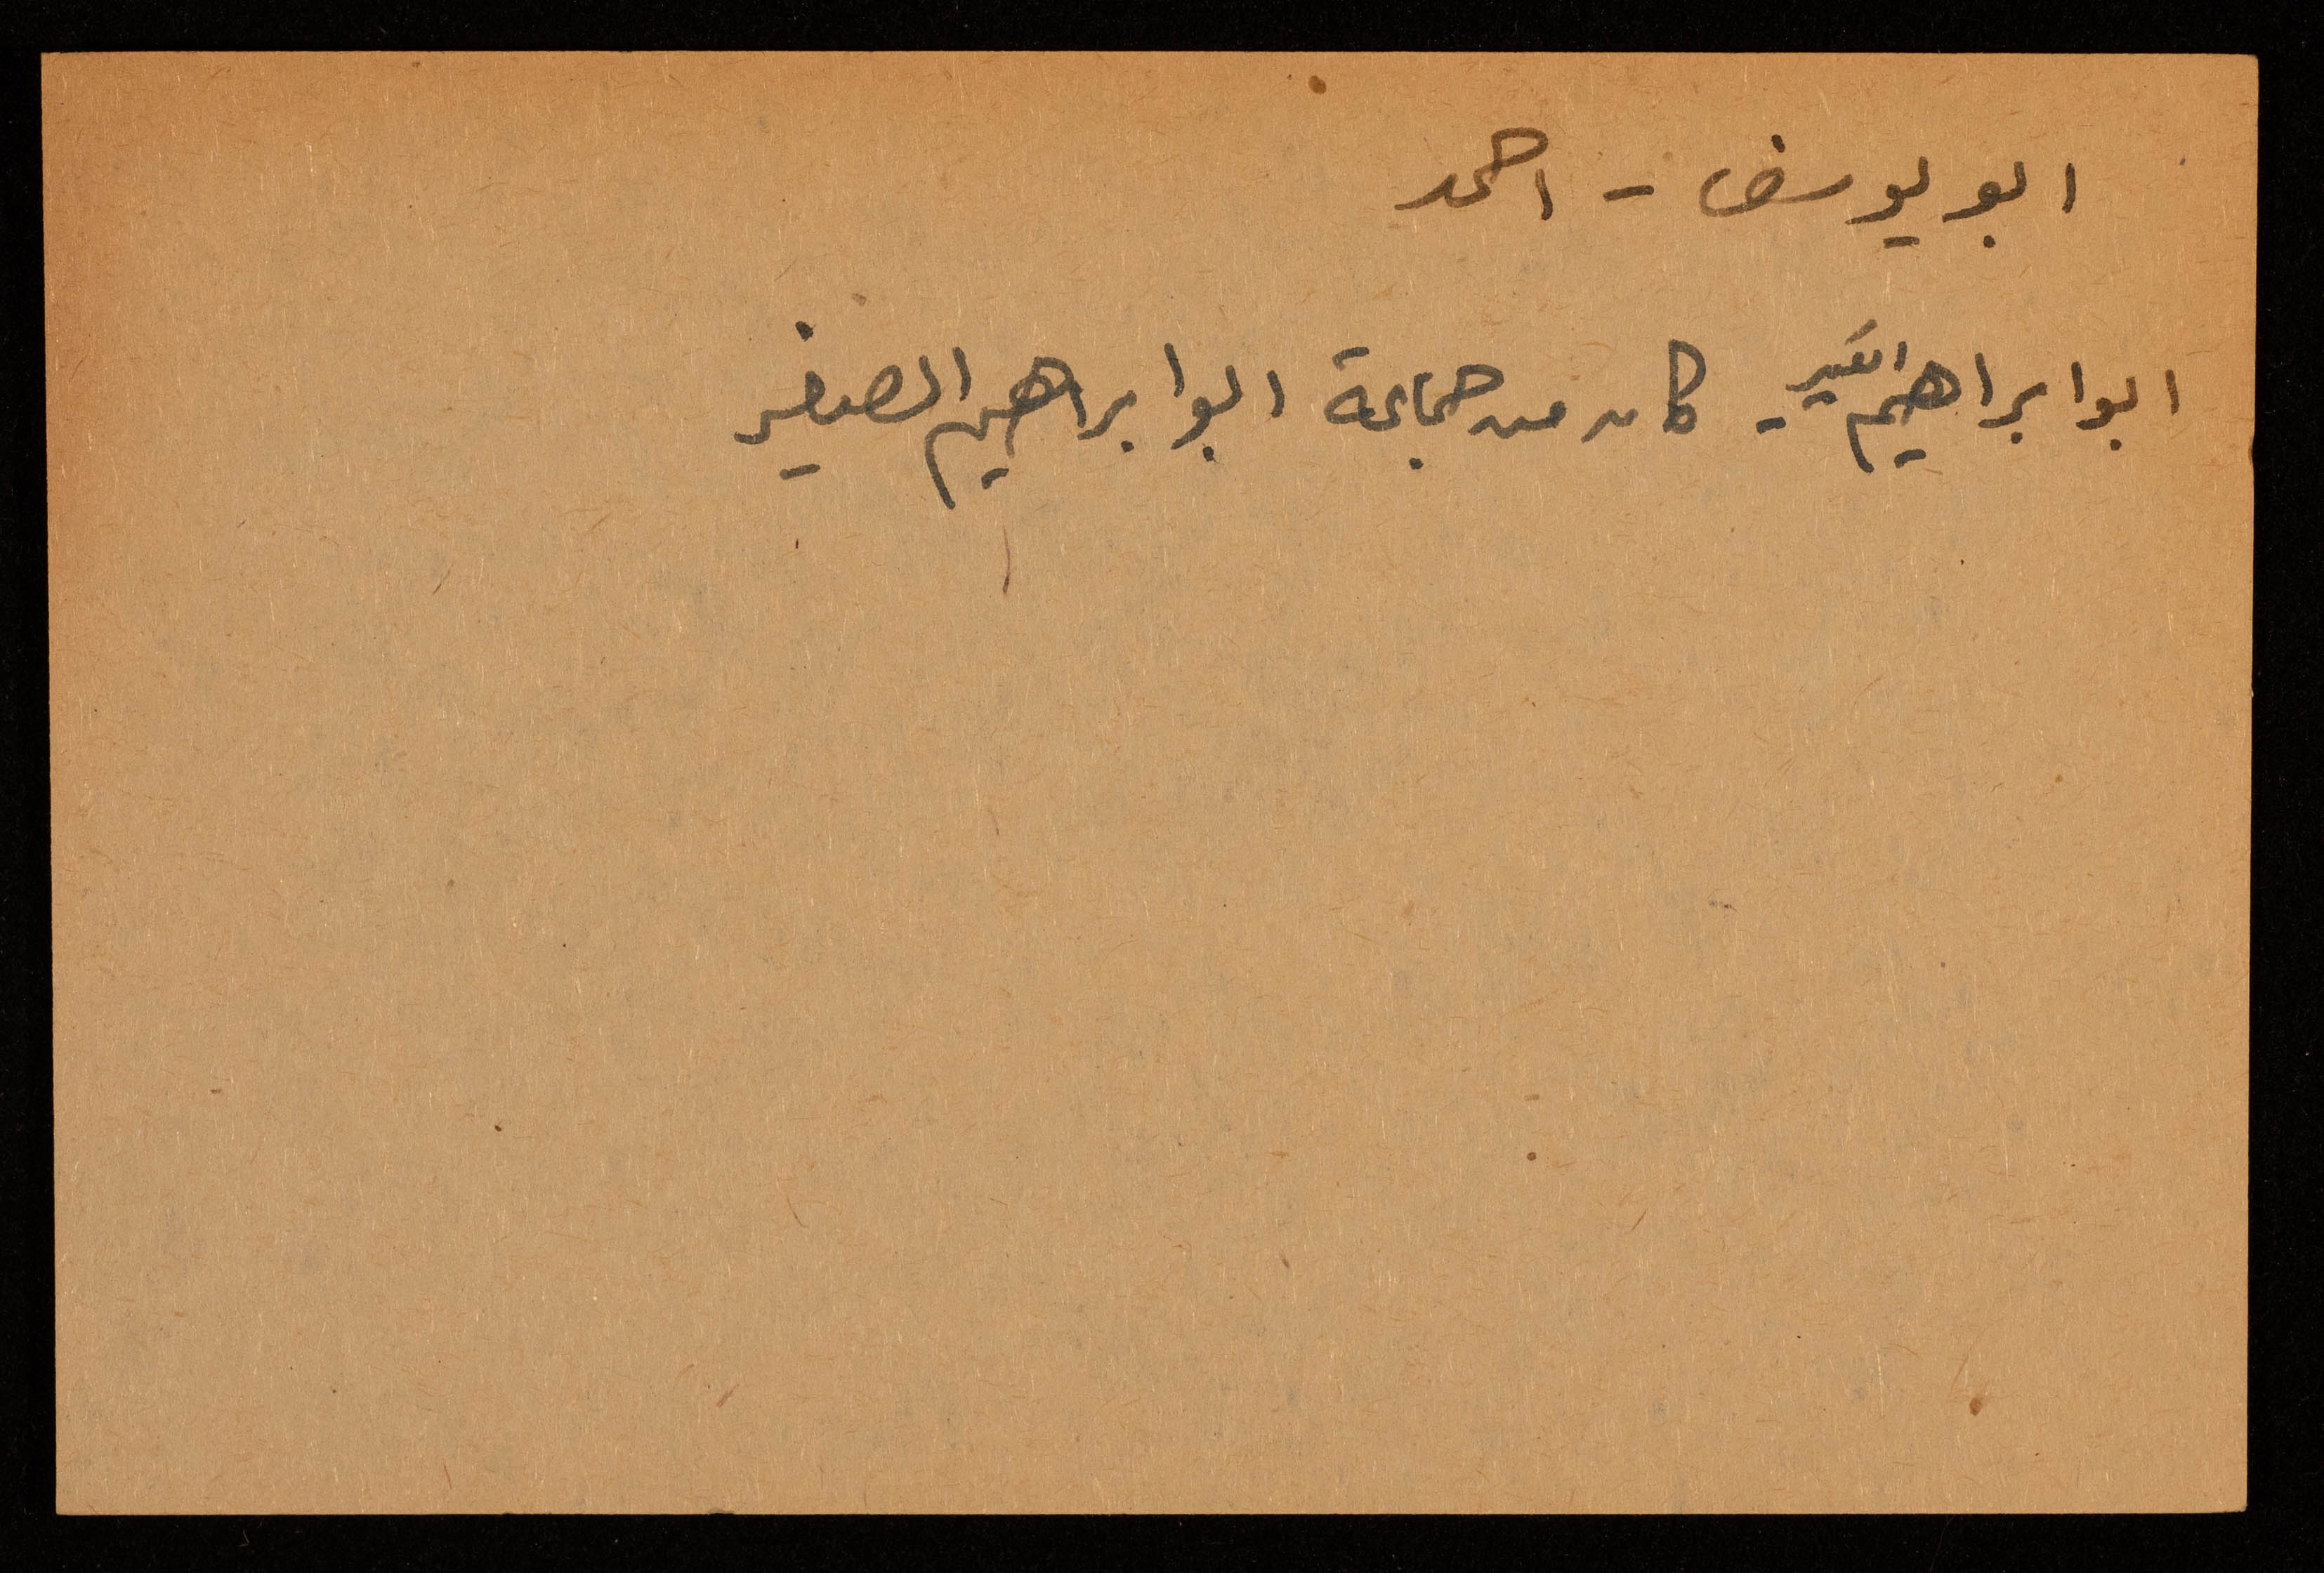 ابو يوسف - احمد
ابو ابراهيم الكبير - كان من جماعة ابو ابراهيم الصغير